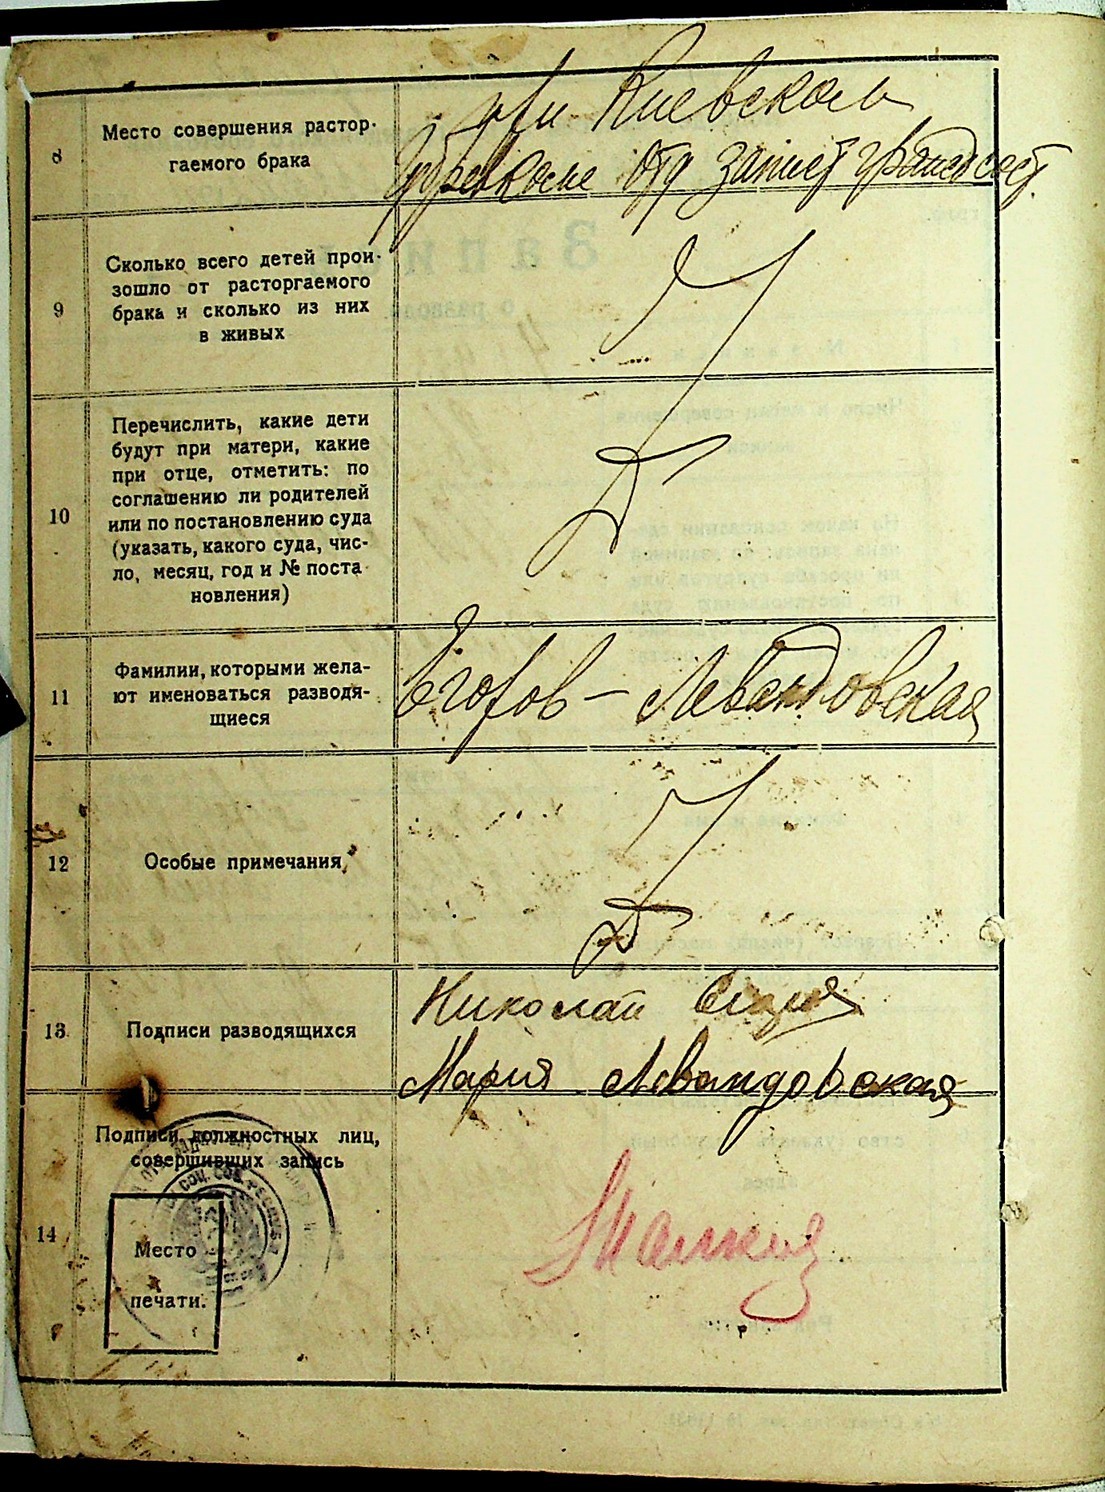 8
Место совершения растор-
гаемого брака
при Киевском
Губревкоме Отд запис граждсост.
9
Сколько всего детей прои-
зошло от расторгаемого
брака и сколько из них
в живых
10
Перечислить, какие дети
будут при матери, какие
при отце, отметить: по
соглашению ли родителей
или по постановлению суда
(указать, какого суда, чис-
ло, месяц, год и № поста
новления)
11
Фамилии, которыми жела-
ют именоваться разводя-
щиеся
Егоров – Левандовская
12
Особые примечания
13
Подписи разводящихся
Николай
Мария Левандовская
14
Подписи должностных лиц,
совершивших запись
СОЦ. СОВ. РЕСПУБ
Место
печати.